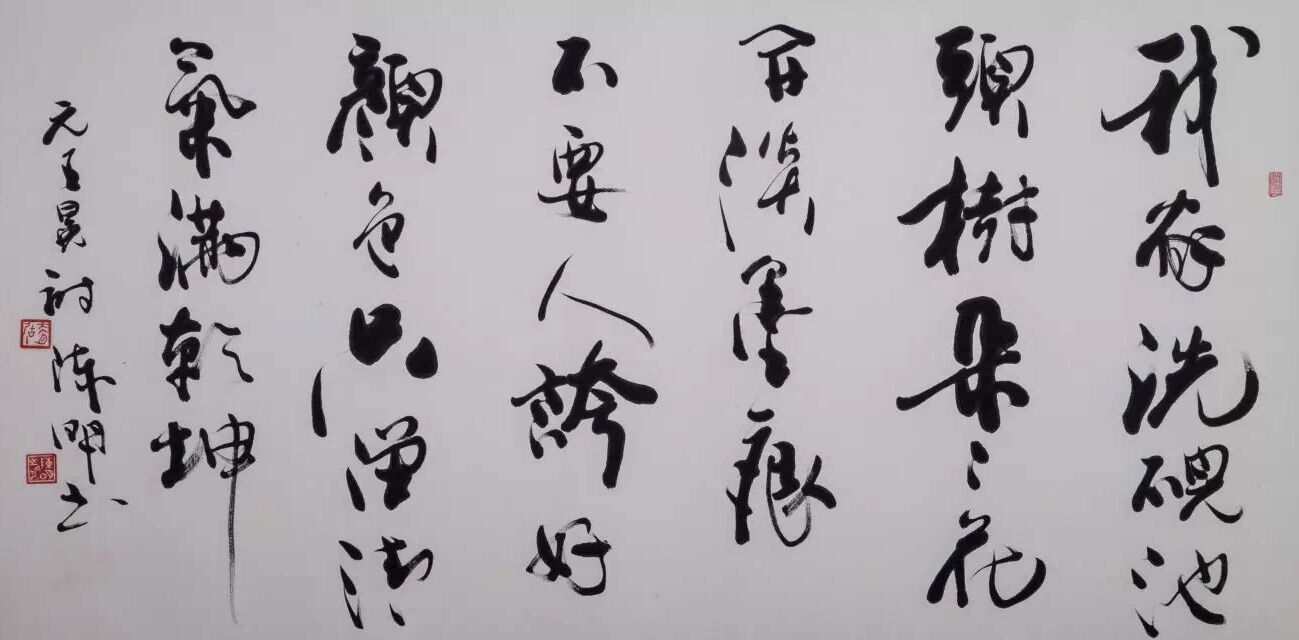 我家洗硯池
頭樹朵々花
開淡墨痕
不要人誇好
顏色只留清
氣滿乾坤
元王冕詩陳明书